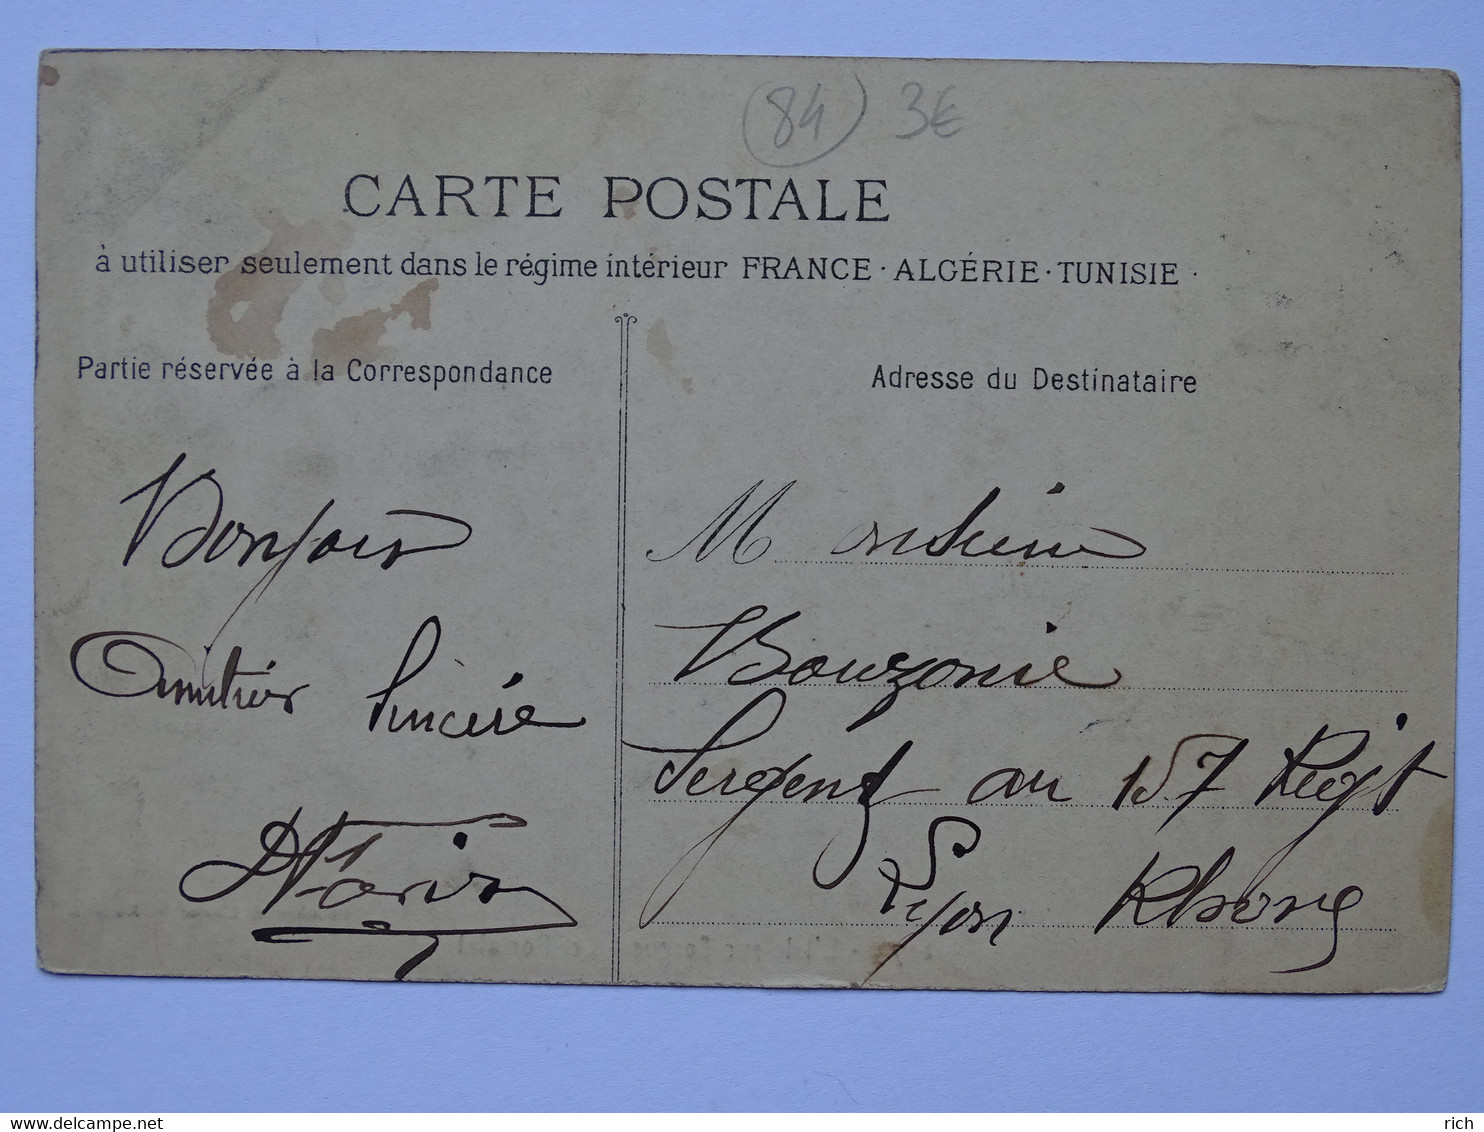 (84) 3€
CARTE POSTALE
à utiliser seulement dans le régime intérieur FRANCE · ALGÉRIE · TUNISIE ·
Partie réservée à la Correspondance
Bonjour
Amitiés Sincère
Adresse du Destinataire
Monsieur
Bouzonie
Sergent au 157 Regt
Lyon Rhone
www.delcampe.net
rich